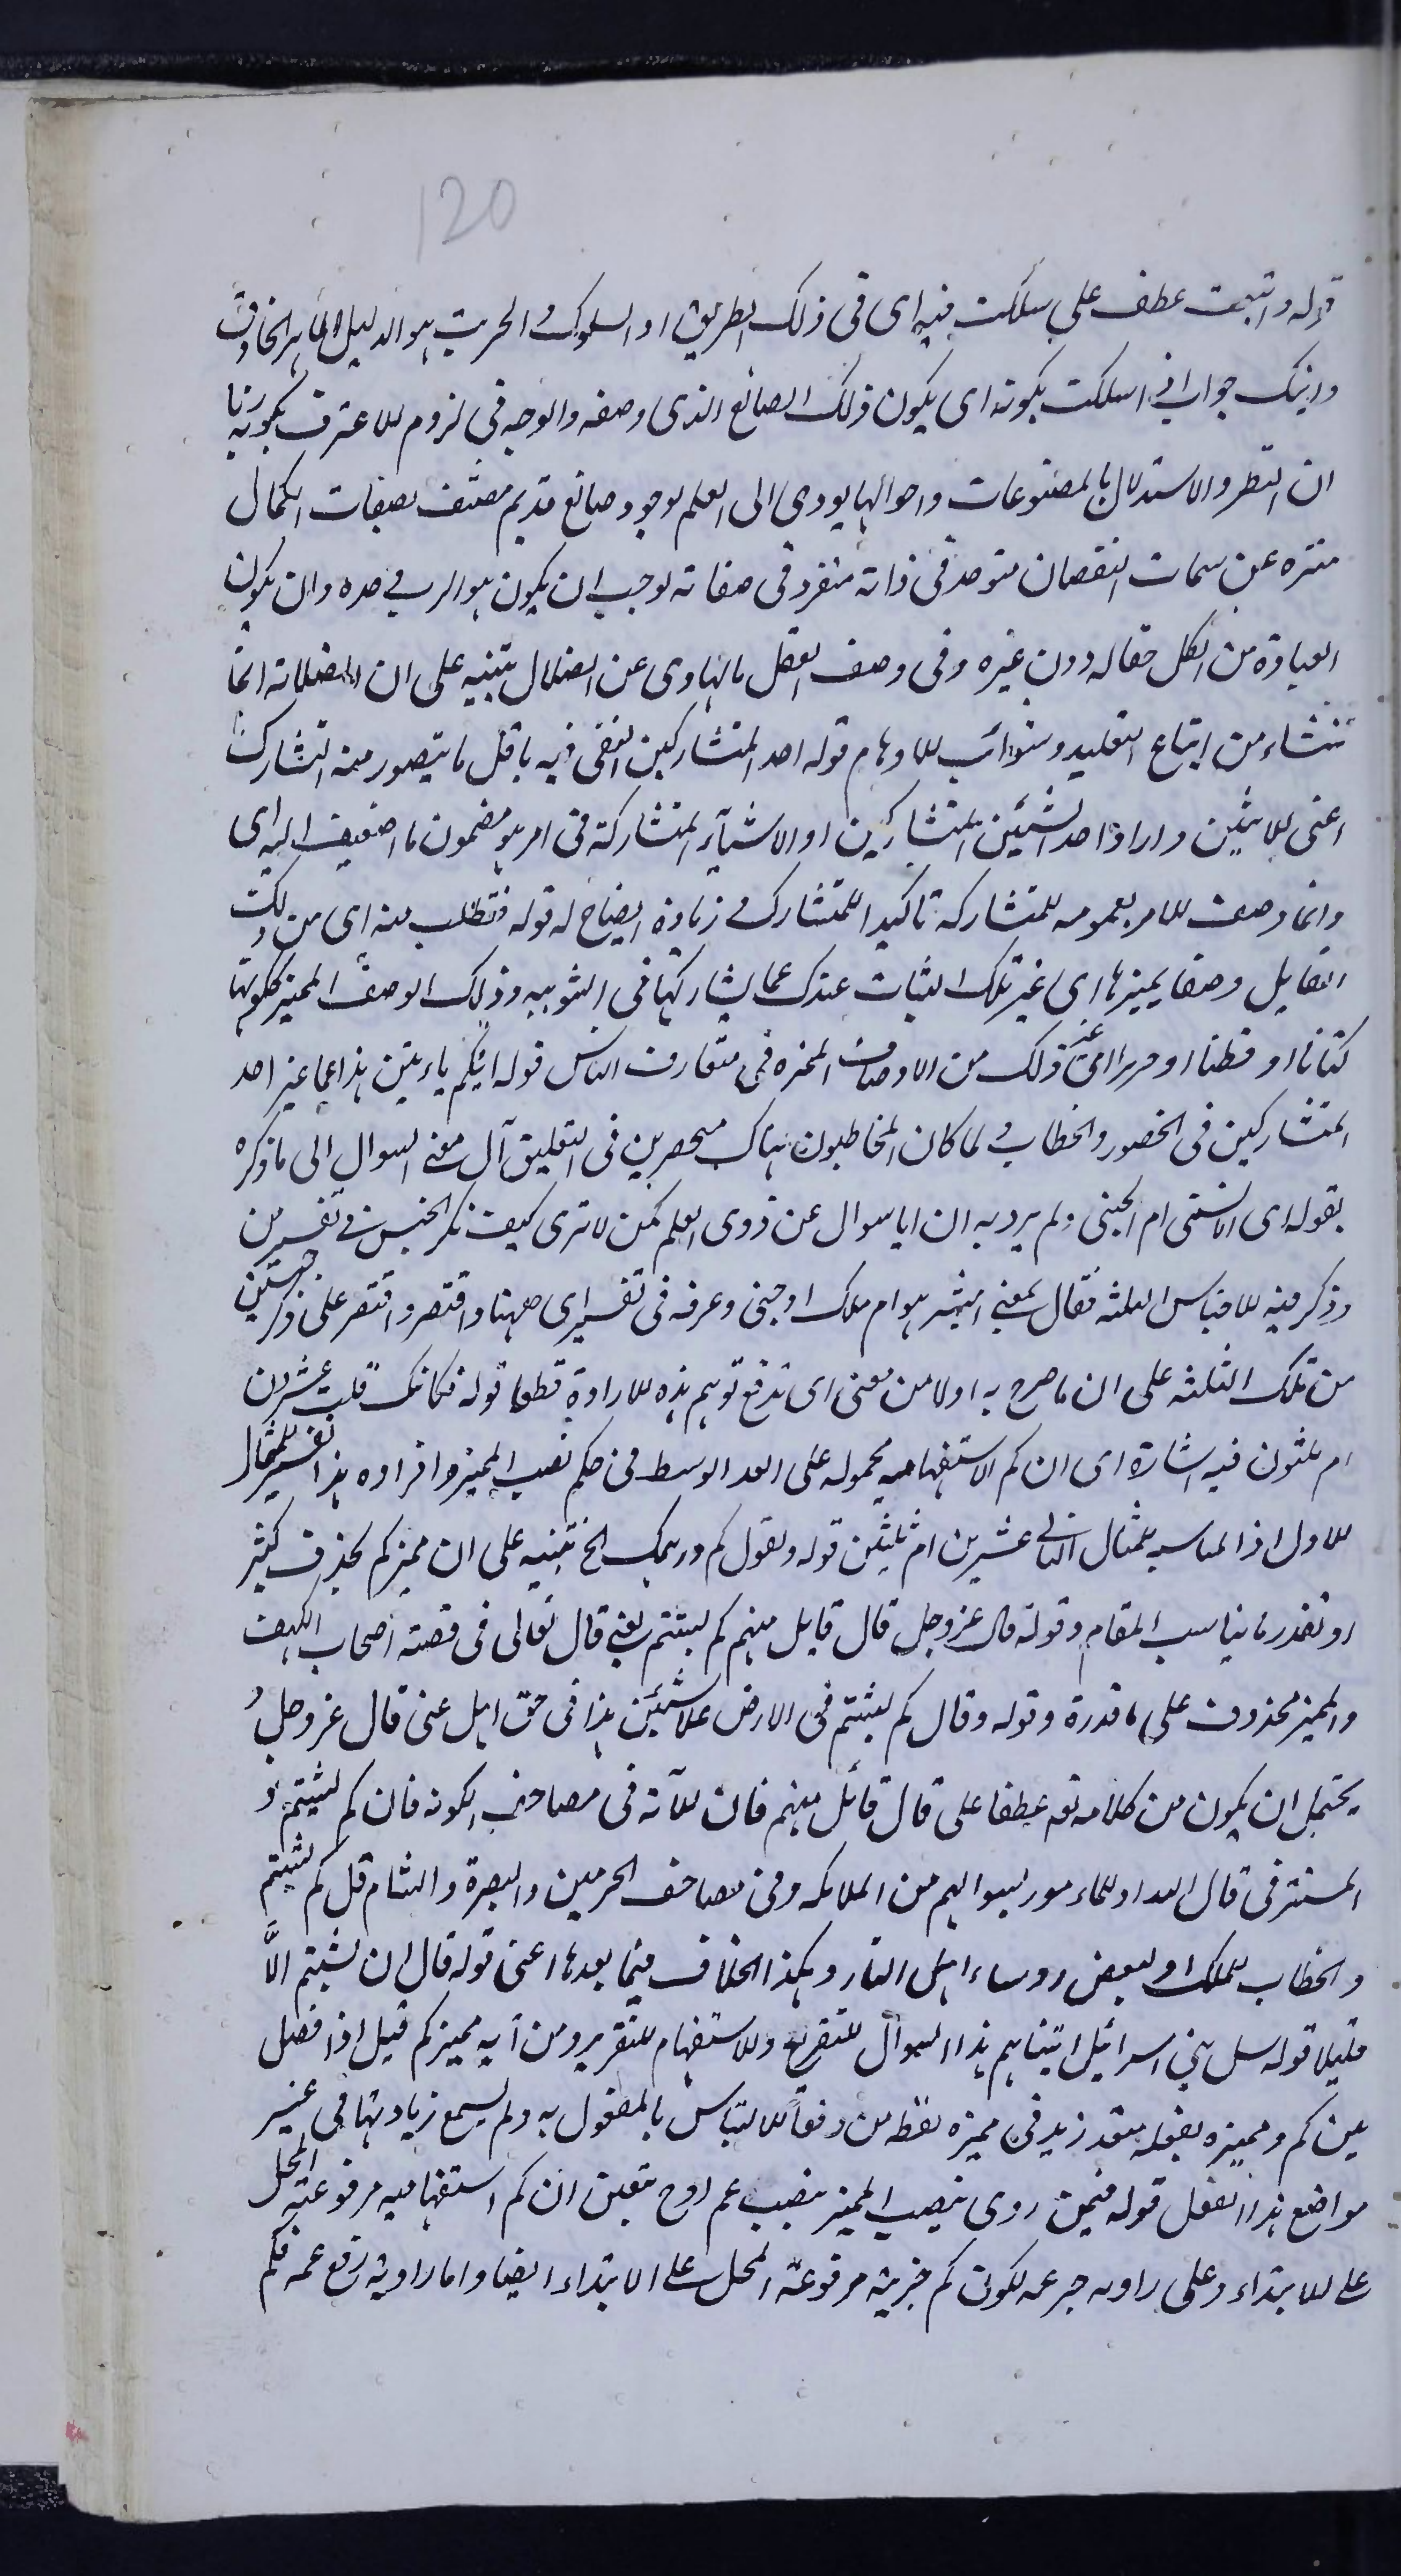 120
قوله واتبعت عطف على سلكت فيه اى فى ذلك الطريق او السلوك والخريت هو الدليل الماهر الحاذق
وانك جواب اذا سلكت بكونه اى بكون ذلك الصانع الذى وصفه والوجه فى لزوم الاعتراف بكونه ربا
ان النظر والاستدلال بالمصنوعات واحوالها يودى الى العلم بوجود صانع قديم متصف بصفات الكمال
منزه عن سمات النقصان متوحد فى ذاته منفرد فى صفاته يوجب ان يكون هو الرب وحده وان يكون
العبادة من الكل حقا له دون غيره وفى وصف العقل بالهادى عن الضلال تنبيه على ان الضلالة انما
تنشاء من اتباع التقليد وشوائب الاوهام قوله احد المتشاركين اكتفى فيه باقل ما يتصور منه التشارك
اعنى الاثنين واراد احد الشيئين المتشاركين او الاشيآء المتشاركة فى امر هو مضمون ما اضيف اليه اى
وانما وصف الامر بعمومه للمتشاركه تاكيدا للتشارك وزيادة ايضاح له قوله فتطلب منه اى من ذلك
القايل وصفا يميزها اى غير تلك الثياب عندك عما يشاركها فى الثوبيه وذلك الوصف المميز ككونها
كتانا او قطنا او حريرا الى غير ذلك من الاوصاف المميزه فى متعارف الناس قوله ايكم ياتينى هذا مما عبر احد
المتشاركين فى الحضور والخطاب ولما كان المخاطبون هناك منحصرين فى الثقلين آل معنى السوال الى ما ذكره
بقوله اى الانسى ام الجنى ولم يرد به ان ايا سوال عن ذوى العلم كمن لا ترى كيف نكر الجنس فى تفسير من
وذكر فيه الاجناس الثلثه فقال بمعنى ابشر هو ام ملك او جنى وعرفه فى تفسير اى ههنا واقتصر على ذكر جنسين
من تلك الثلثه على ان ما صرح به اولا من معنى اى تدفع توهم هذه الارادة قطعا قوله فكانك قلت عشرون
ام ثلثون فيه اشارة الى ان كم الاستفهاميه محموله على العدد الوسط فى حكم نصب المميز وافراده هذا تفسير للمثال
الاول اذ المناسب للمثال الثانى عشرين ام ثلثين قوله وتقول كم درهمك الخ تنبيه على ان مميز كم يحذف كثير
او تقدر ما يناسب المقام وقوله قال عز وجل قال قايل منهم كم لبثتم يعنى قال تعالى فى قصة اصحاب الكهف
والمميز محذوف على ما قدرة وقوله وقال كم لبثتم فى الارض عدد سنين هذا فى حق اهل عنى قال عز وجل و
يحتمل ان يكون من كلامه تعم عطفا على قال قائل منهم فان الآية فى مصاحف الكوفه قال كم لبثتم و
المستتر فى قال الله او للماءمور بسوالهم من الملائكه وفى مصاحف الحرمين والبصرة والشام قل كم لبثتم
والخطاب للملك او لبعض روساء اهل النار وهكذا الخلاف فيما بعدها اعنى قوله قال ان لبثتم الّا
قليلا قوله سل بنى اسرائيل اتيناهم هذا السوال للتقريع والاستفهام للتقرير ومن آية مميز كم قيل اذا فصل
بين كم ومميزه بفعل متعد زيد فى مميزه لفظ من دفعا للالتباس بالمفعول به ولم يسمع زيادتها فى غير
مواضع هذا الفعل قوله فيمن روى بنصب المميز بنصب عم اوح يتعين ان كم استفهاميه مرفوعة المحل
على الابتداء وعلى راويه جر عمه لكون كم خبرية مرفوعة المحل على الابتداء ايضا واما راوية رفع عمه فكم